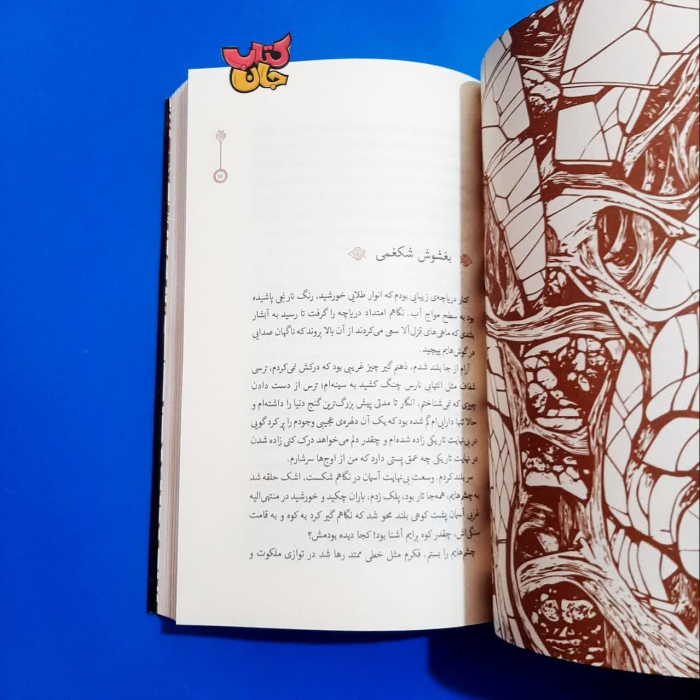 کتاب
جان
بغشوش شکغمی
کنار دریاچه‌ی زیبایی بودم که انوار طلایی خورشید، رنگ نارنجی پاشیده
بود به سطح مواج آب. نگاهم امتداد دریاچه را گرفت تا رسید به آبشار
بلندی که ماهی‌های قزل‌آلا سعی می‌کردند از آن بالا بروند که ناگهان صدایی
در گوش‌هایم پیچید.
آرام از جا بلند شدم، ذهنم گیر چیز غریبی بود که درکش نمی‌کردم، ترسی
شفاف مثل انتهایی نارس چنگ کشید به سینه‌ام، ترس از دست دادن
چیزی که نمی‌شناختم، انگار تا مدتی پیش بزرگ‌ترین گنج دنیا را داشته‌ام و
حالا تنها دارایی‌ام گم شده بود که یک آن دلهره‌ی عجیبی وجودم را پر کرد گویی
در بی‌نهایت تاریکی زاده شده‌ام و چقدر دلم می‌خواهد درک کنی زاده شدن
در نهایت تاریکی چه عمق پستی دارد که من از اوج‌ها سرشارم.
سر بلند کردم. وسعت بی‌نهایت آسمان در نگاهم شکست، اشک حلقه شد
به چشم‌هایم، همه‌جا تار بود، پلک زدم، باران چکید و خورشید در منتهی‌الیه
غربی آسمان پشت کوهی بلند محو شد که نگاهم گیر کرد به کوه و به قامت
سنگی‌اش، چقدر کوه برایم آشنا بود! کجا دیده بودمش؟
چشم‌هایم را بستم. فکرم مثل خطی ممتد رها شد در توازی ملکوت و